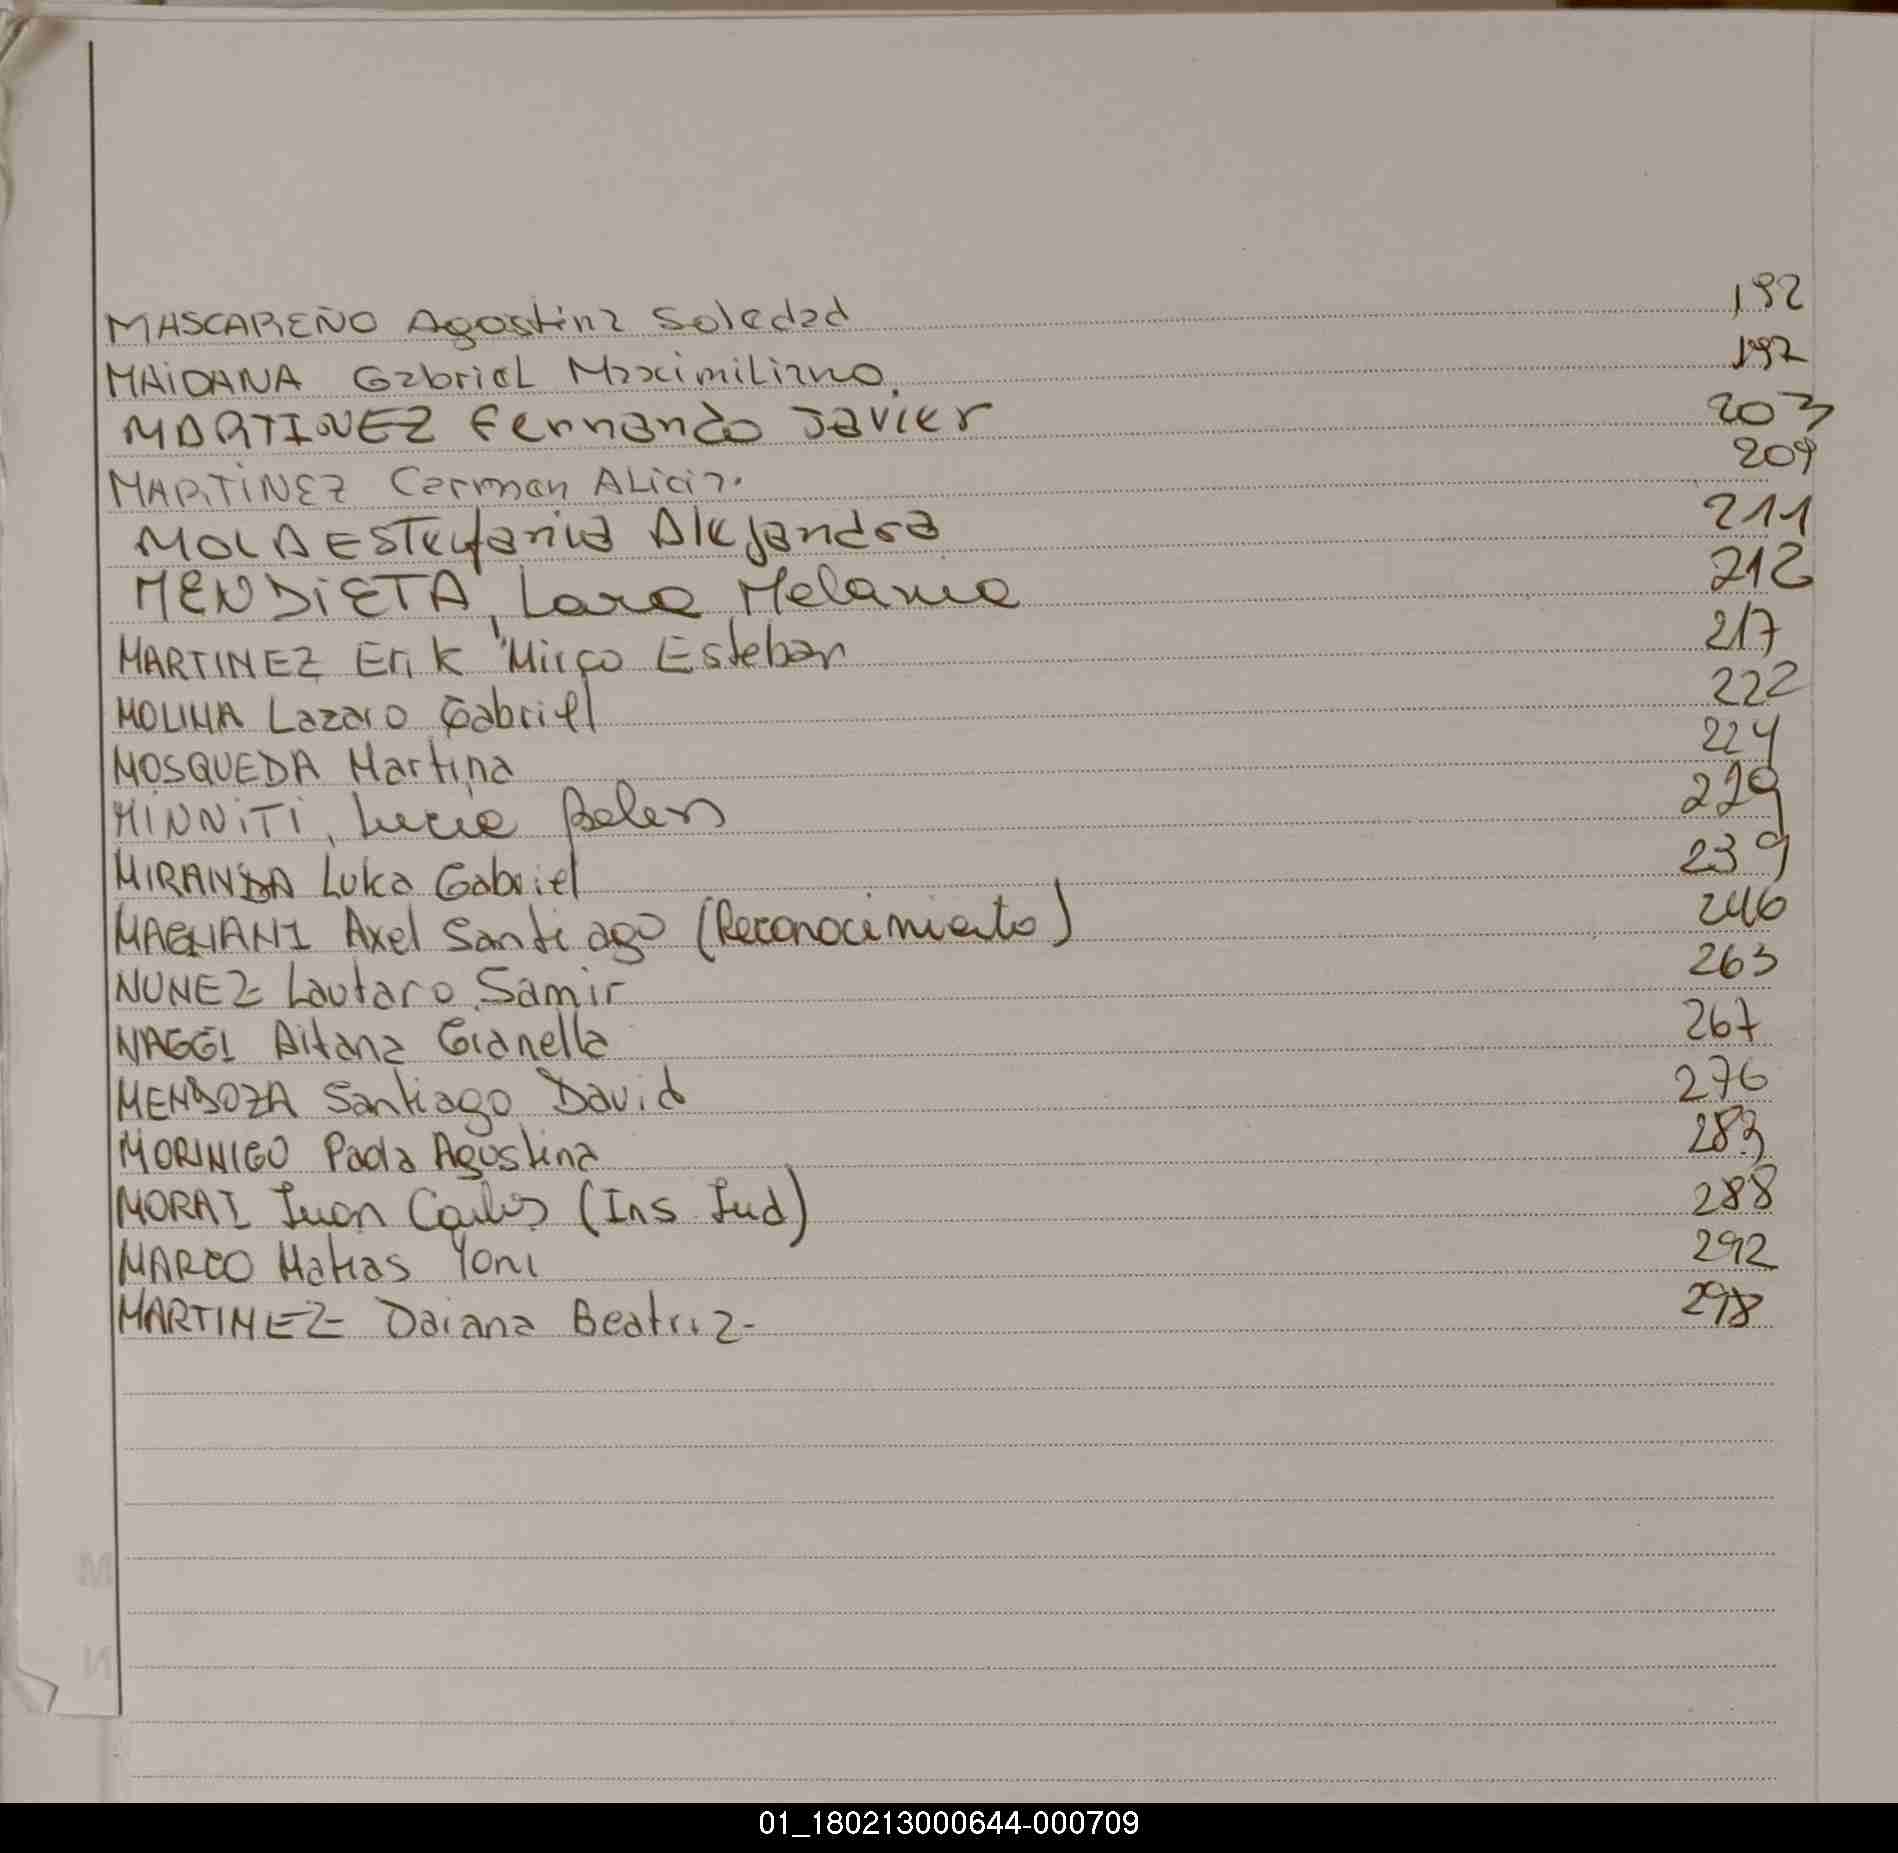 MASCAREÑO Agostina Soledad 192
MAIDANA Gabriel Maximiliano. 197
MARTINEZ Fernando Javier 203
MARTINEZ Carmen Alicia. 209
MOLA Estefania Alejandra 211
MENDIETA, Lara Melanie 212
MARTINEZ Erik Mirco Esteban 217
MOLINA Lazaro Gabriel 222
MOSQUEDA Martina 224
MINNITI, Lucia Belen 229
MIRANDA Luka Gabriel 239
MAGNANI Axel Santiago (Reconocimiento) 246
NUNEZ Lautaro Samir 263
NAGGI Aitana Gianella 267
MENDOZA Santiago David 276
MORINIGO Paola Agostina 283
MORAI Juan Carlos (Ins Jud) 288
MARCO Matias Yoni 292
MARTINEZ Daiana Beatriz- 298
M
N
01_180213000644-000709